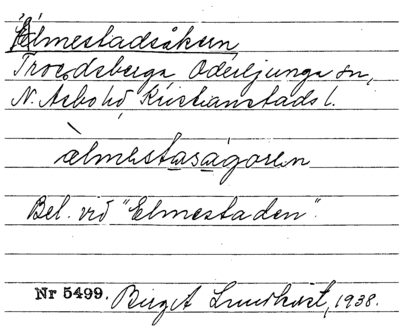 Elmestadsåkern,
Troedsberga Oderljunga sn,
N. Åsbo hd, Kristianstads l.
àlmestasågoren
Bel. vid "Elmestaden".
Nr 5499. Birgit Lundkvist, 1938.